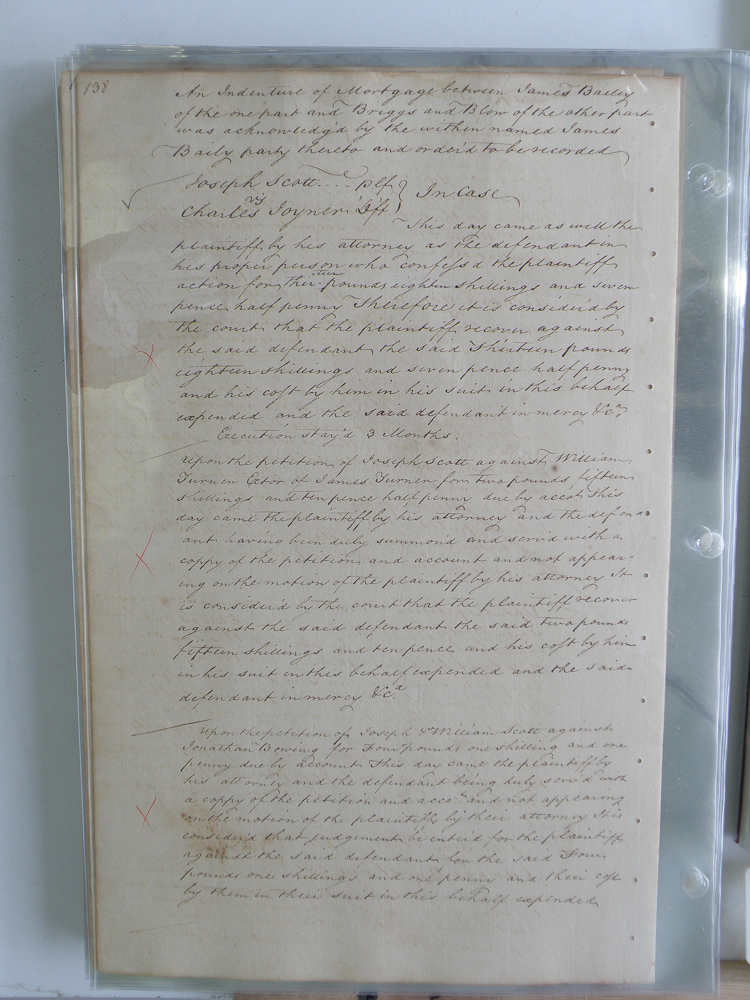 138
An Indenture of Mortgage between James Bailey
of the one part and Briggs and Blow of the other part
was acknowledg'd by the within named James
Baily party thereto and order'd to be recorded
Joseph Scott Plf
vs In Case
Charles Joyner Dft
This day came as well the
plaintiff by his attorney as the defendant in
his proper person who confess'd the plaintiff
action for thirteen pounds eighteen shillings and seven
pence half penny Therefore it is consider'd by
the court that the plaintiff recover against
the said defendant the said Thirteen pounds
eighteen shillings and seven pence half penny
and his cost by him in his suit in this behalf
expended and the said defendant in mercy &ca
Execution stay'd 3 Months.
Upon the petition of Joseph Scott against William
Turner Extor of James Turner for two pounds fifteen
shillings and ten pence half penny due by accot This
day came the plaintiff by his attorney and the defend
ant having been duly summond and serv'd with a
coppy of the petition and account and not appear-
ing on the motion of the plaintiff by his attorney It
is consider'd by the court that the plaintiff recover
against the said defendant the said two pounds
fifteen shillings and ten pence and his cost by him
in his suit in this behalf expended and the said
defendant in mercy &ca
Upon the petition of Joseph & William Scott against
Jonathan Bowing for Four pounds one shilling and one
penny due by account This day came the plaintiff by
his attorney and the defendant being duly serv'd with
a coppy of the petition and acco.t and not appearing
on the motion of the plaintiff by their attorney It is
consider'd that judgement be enter'd for the plaintiff
against the said defendant for the said Four
pounds one shillings and one penny and their cost
by them in their suit in this behalf expended